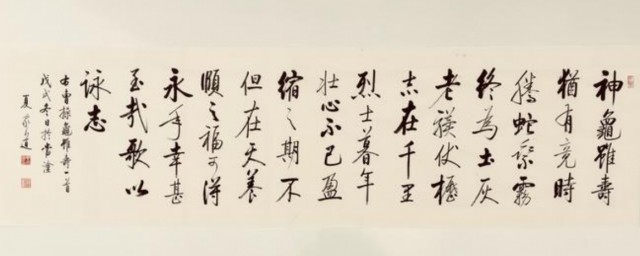 神龜雖壽
猶有竟時
騰蛇乘霧
終為土灰
老驥伏櫪
志在千里
烈士暮年
壯心不已盈
縮之期不
但在天養
頤之福可得
永年幸甚
至哉歌以
詠志
右曹操龜雖壽一首
戊戌冬日於當塗
夏